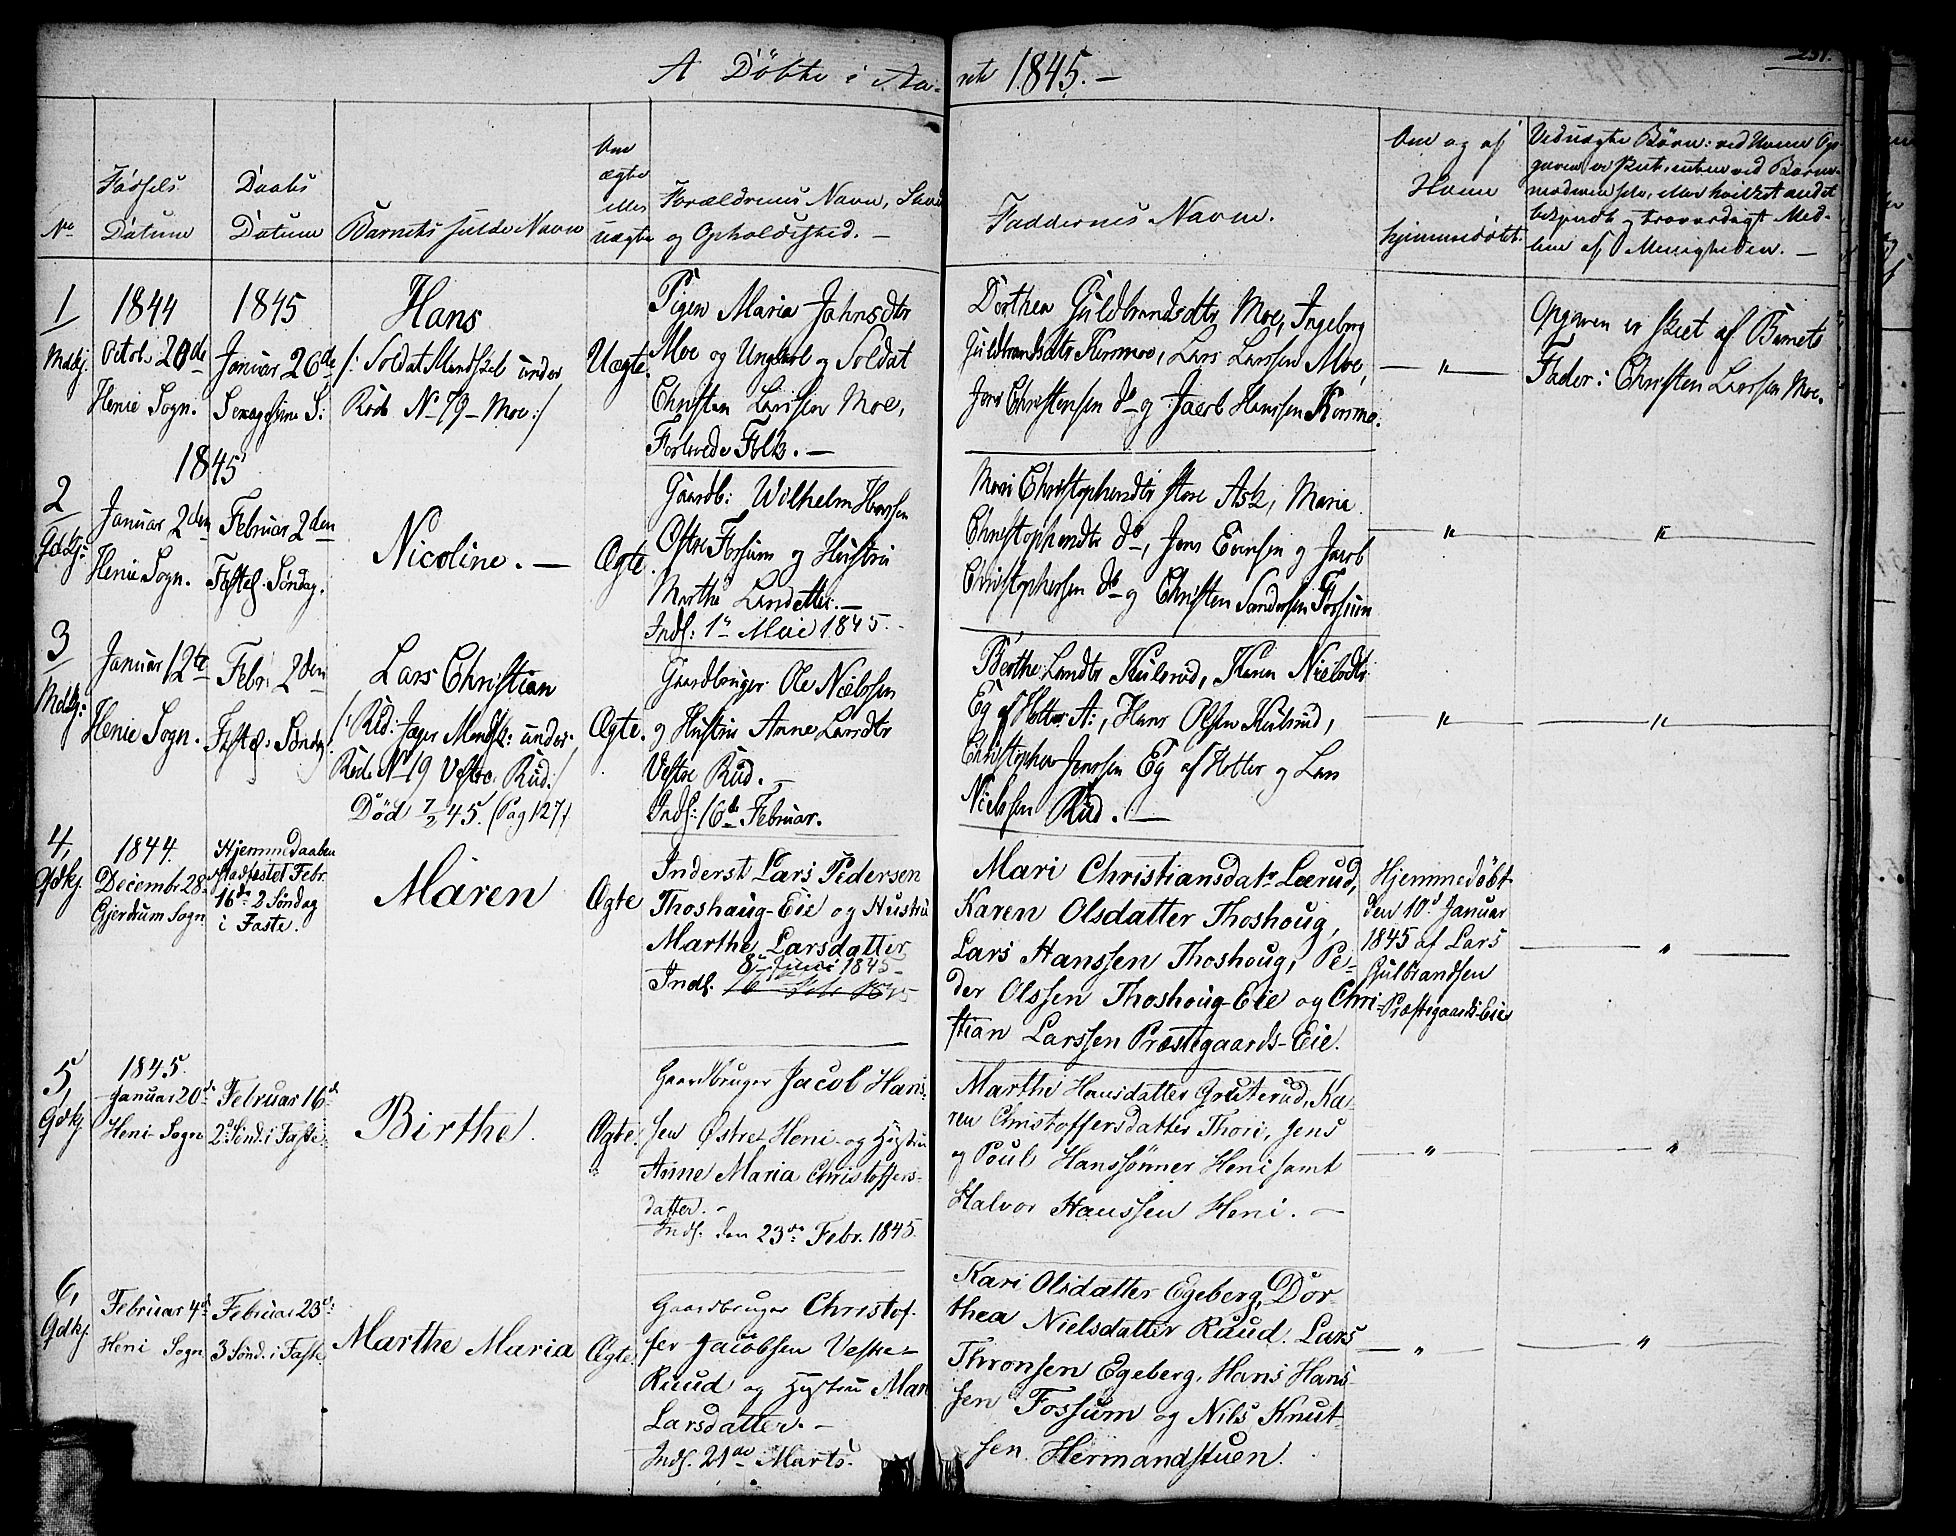 231.
A Døbte i Aa-
ret 1845. —
No
Fødsels
Datum
Daabs
Datum
Barnets fulde Navn
Om
ægte
eller
uægte
Forældrenes Navn, Stand
og Opholdssted. —
Faddernes Navne.
Om og af
Hvem
hjemmedøbt.
Ved uægte Børn: ved Hvem Op-
gaven er skeet, enten ved Barne-
moderen selv, eller hvilket andet
bekjendt og troværdigt Med-
lem af Menigheden. —
1
Mdkj.
1844
Octob. 20de
Henie Sogn.
1845
Januar 26de
Sexagesima S:
Hans
/: Soldat Mandskab under
Rode No 79 – Moe :/
Uægte.
Pigen Maria Jahnsdtr
Moe og Ungkarl og Soldat
Christen Larssen Moe,
Forlovede Folk. —
Dorthea Guldbrandsdtr Moe, Ingeborg
Guldbrandsdtr Kormoe, Lars Larssen Moe,
Jens Christensen do og Jacob Hanssen Kormo.
— " —
Opgaven er skeet af Barnets
Fader: Christen Larssen Moe.
1845
2
Gdkj:
Januar 2den
Henie Sogn.
Februar 2den
Fastel. Søndag.
Nicoline. —
Ægte.
Gaardb: Wilhelm Hanssen
Østre Fossum og Hustru
Marthe Larsdatter. —
Indl: 1ste Mai 1845. -
Mari Christophersdtr store Ask, Marie
Christophersdtr do, Jens Evensen og Jacob
Christophersen do og Christen Sandersen Fossum
— " —
"
3
Mdkj:
Januar 12te
Henie Sogn.
Febr. 2den
Fastel: Søndag.
Lars Christian
/: Rid: Jæger Mandsk: under
Rode No 19 Vestre Rud :/
Død 7/2 45. (Pag 127)
Ægte.
Gaardbruger Ole Nielssen
og Hustru Anne Larsdtr
Vestre Rud. —
Indl: 16de Februar.
Berthe Larsdtr Kulsrud, Karen Nielsdtr
Eg af Hotter A:, Hans Olsen Kulsrud,
Christopher Jenssen Eg af Hotter og Lars
Nielssen Rud. —
— " —
"
4,
Gdkj.
1844.
Decembr. 28de
Gjerdrum Sogn
Hjemmedaaben
stadfæstet Febr.
16de 2 Søndag
i Faste.
Maren
Ægte
Inderst Lars Pedersen
Thoshaug-Eie og Hustru
Marthe Larsdatter
8de Juni 1845 –
Indl.
Mari Christiansdatr Lærud,
Karen Olsdatter Thoshoug,
Lars Hanssen Thoshoug, Pe-
der Olssen Thoshoug-Eie og Chri-
stian Larssen Præstegaards-Eie.
Hjemmedøbt
den 10d Januar
1845 af Lars
Gulbrandsen
Præstegaards-Eie
"
5,
Gdkj.
1845.
Januar 20de
Heni Sogn
Februar 16d
2 Sønd. i Faste
Birthe.
Ægte.
Gaardbruger Jacob Hans-
sen Østre Heni og Hustru
Anne Maria Christoffers-
datter. –
Indl. den 23de Febr. 1845.
Marthe Hansdatter Gruterud, Ka-
ren Christoffersdatter Thori, Jens
og Poul Hanssønner Heni samt
Halvor Hanssen Heni. —
— " —
"
6,
Gdkj.
Februar 4de
Heni Sogn
Februar 23d:
3 Sønd. i Faste
Marthe Maria
Ægte.
Gaardbruger Christof-
fer Jacobsen Vestre
Ruud og Hustru Mari
Larsdatter. –
Indl. 21de Marts.
Kari Olsdatter Egeberg, Dor-
thea Nielsdatter Ruud. Lars
Thronsen Egeberg, Hans Hans-
sen Fossum og Nils Knut-
sen Hermandstuen.
— " —
"